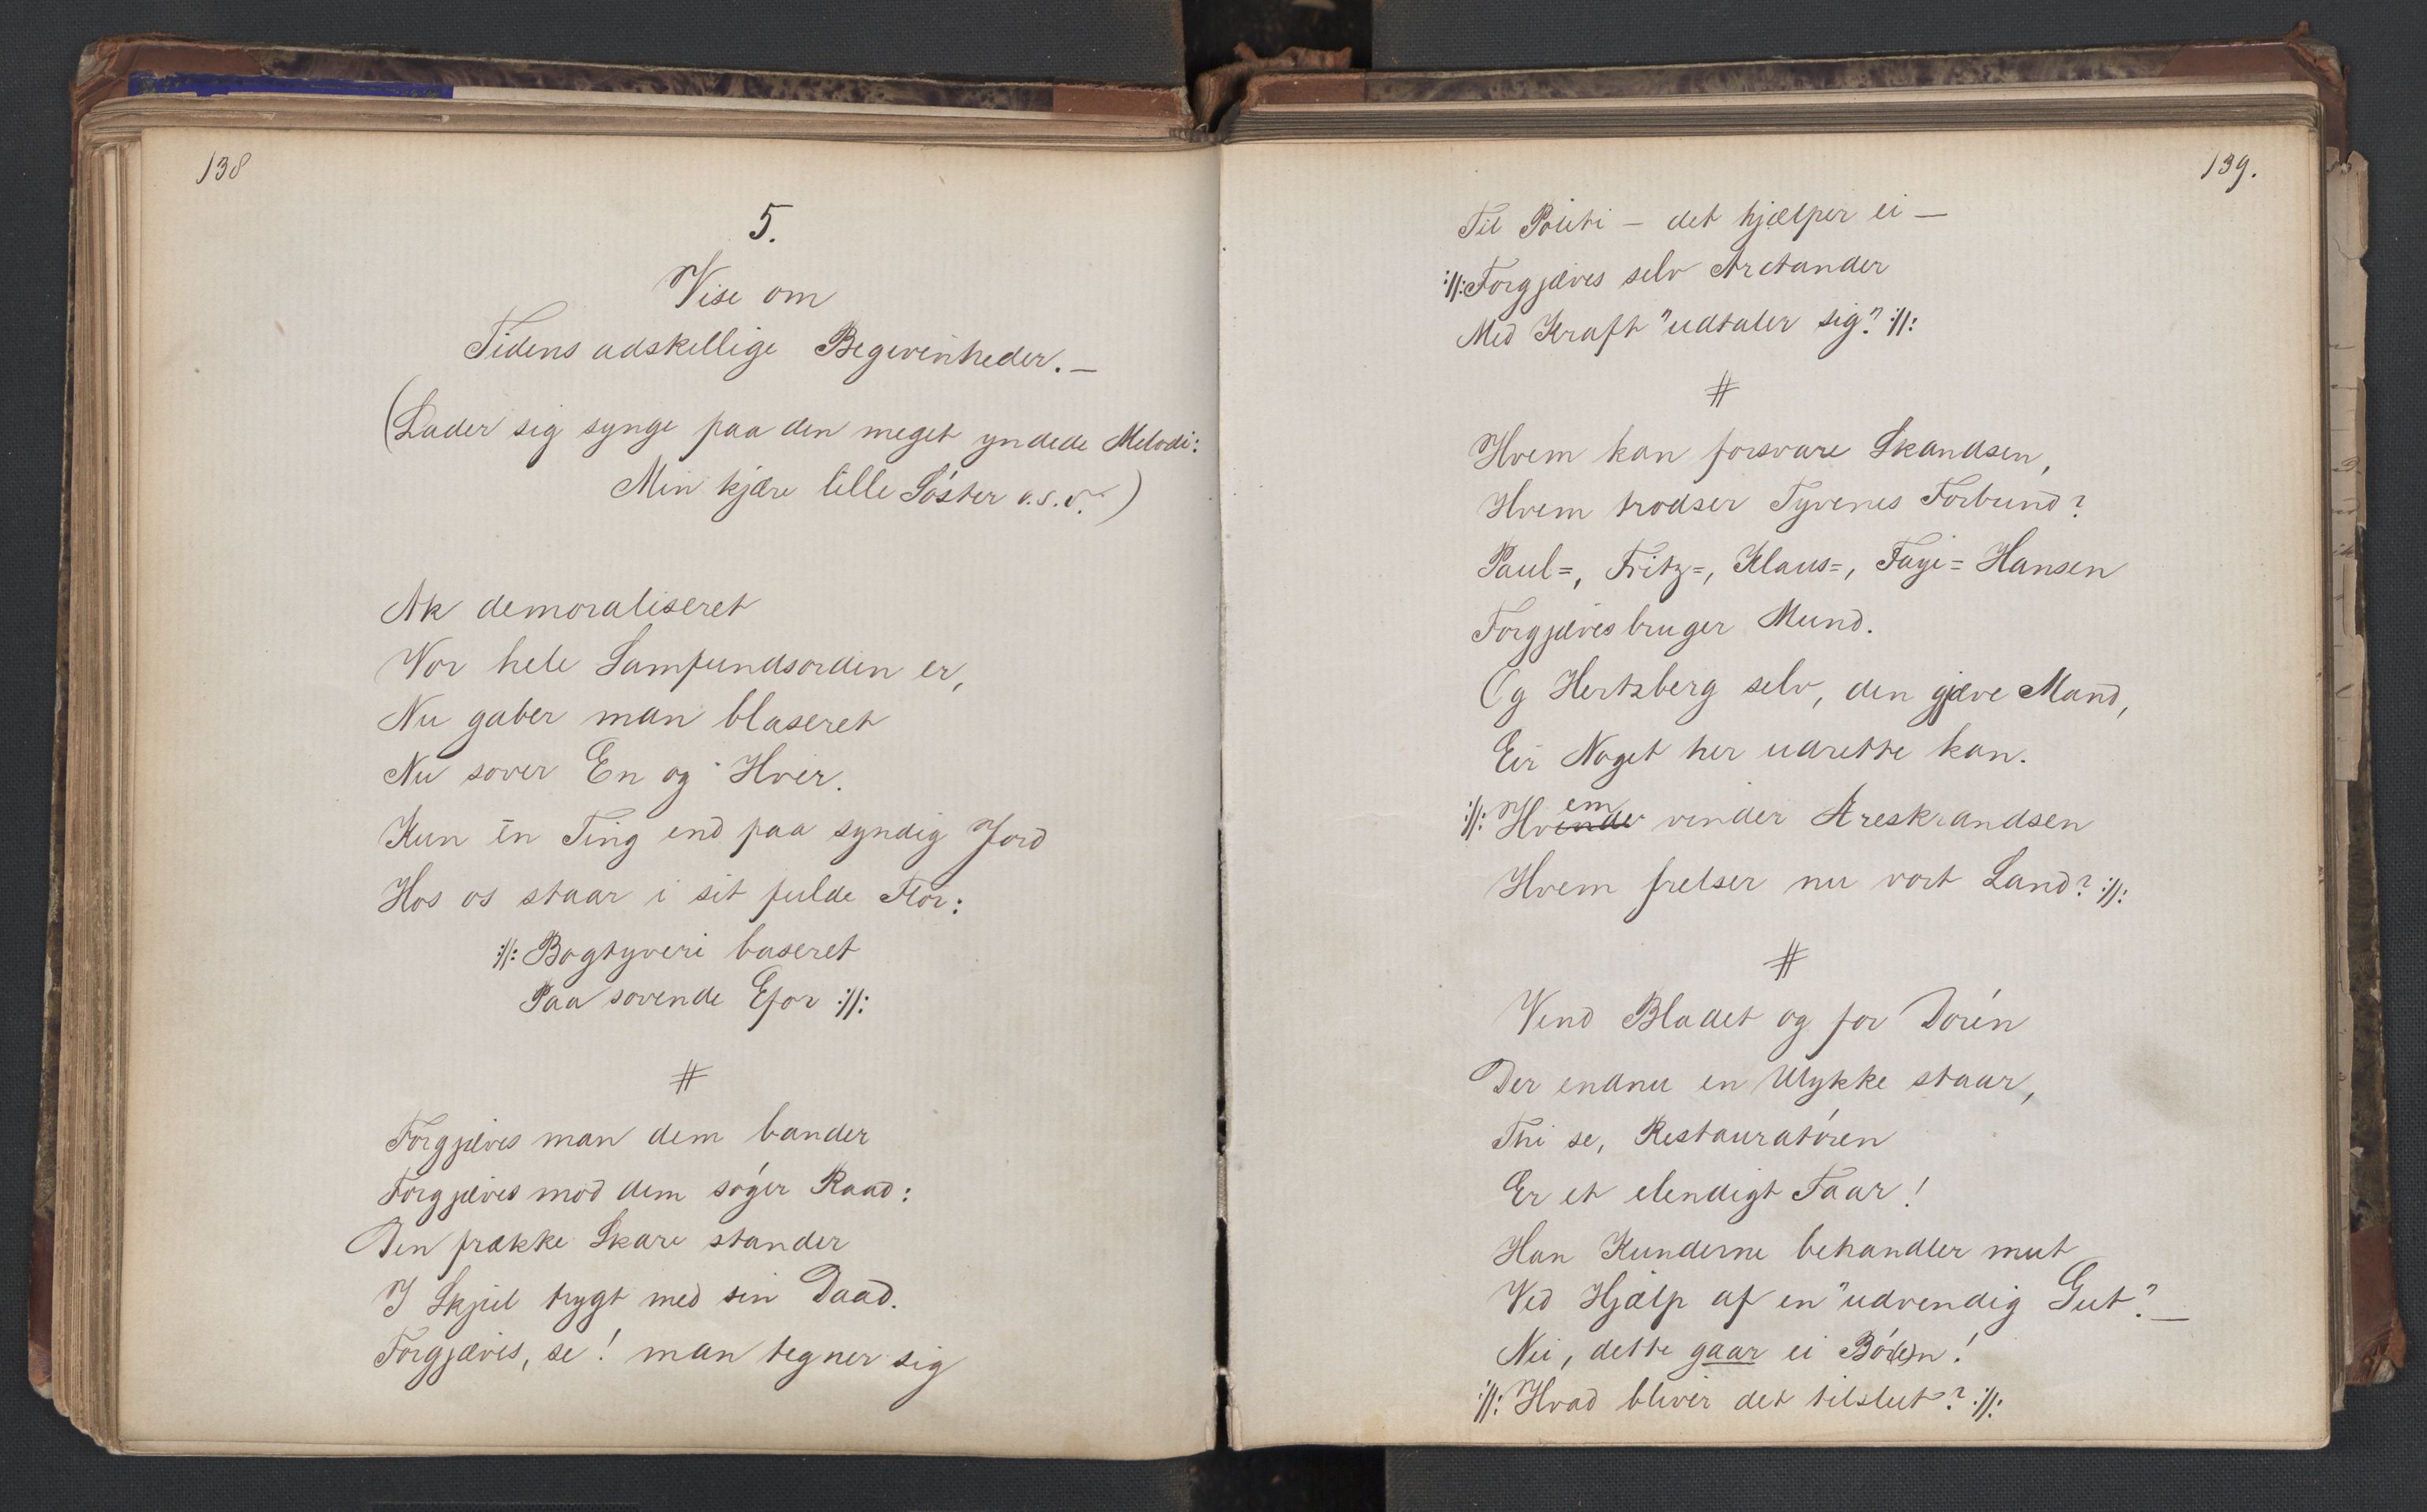 138
5.
Vise om
Tidens adskellige Begivenheder. —
(Lader sig synge paa den meget yndede Melodi:
Min kjære lille Søster o.s.v.)
Ak demoraliseret
Vor hele Samfundsorden er,
Nu gaber man blaseret
Nu sover En og Hver.
Kun én Ting end paa syndig Jord
Hos os staar i sit fulde Flor:
://: Bogtyveri baseret
Paa sovende Efor ://:
#
Forgjæves man dem bander
Forgjæves mod dem søger Raad:
Den frække Skare stander
I Skjul trygt med sin Daad.
Forgjæves, se! man tegner sig
139.
Til Politi — det hjælper ei —
://: Forgjæves selv Arctander
Med Kraft "udtaler sig." ://:
#
Hvem kan forsvare Skandsen,
Hvem trodser Tyvenes Forbund?
Paul=, Fritz=, Klaus=, Fayi= Hansen
Forgjæves bruger Mund.
Og Hertzberg selv, den gjæve Mand,
Ei Noget her udrette kan.
://: Hvem vinder Æreskrandsen
Hvem frelser nu vort Land? ://:
#
Vend Bladet og for Døren
Der endnu en Ulykke staar,
Thi se, Restauratøren
Er et elendigt Faar!
Han Kunderne behandler mut
Ved Hjælp af en "udvendig Gut." —
Nei, dette gaar ei Bør(e)n!
://: Hvad bliver det tilslut? ://: